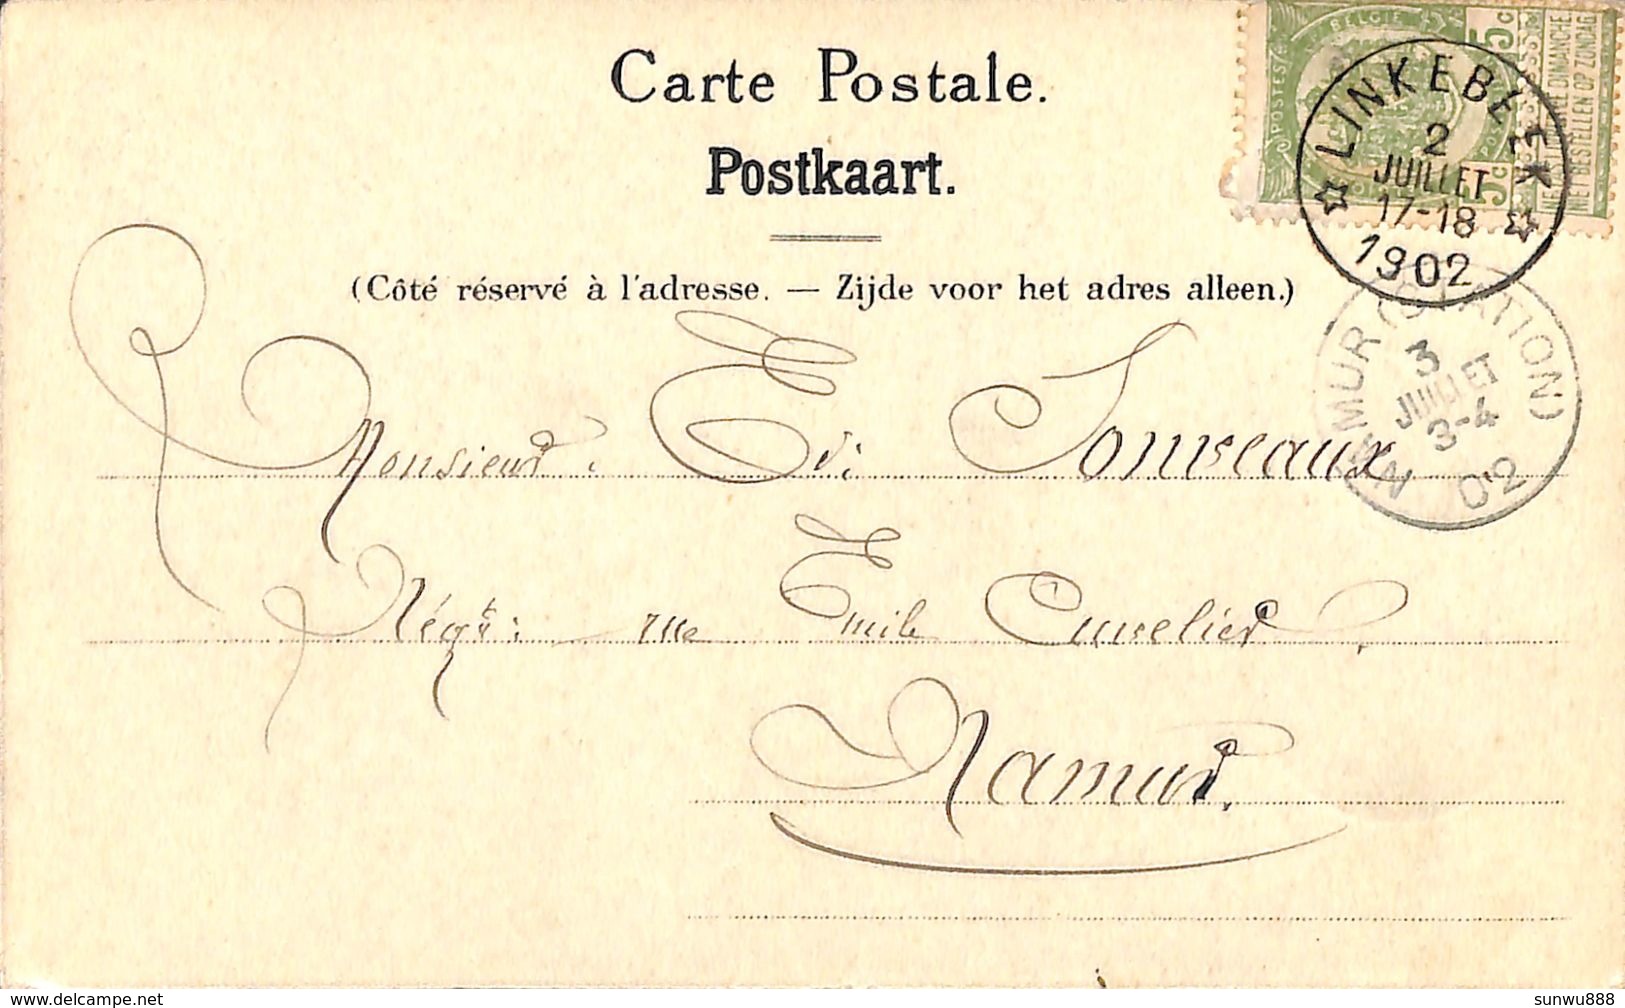 Carte Postale.
Postkaart.
(Côté réservé à l'adresse. — Zijde voor het adres alleen.)
BELGIE 5c
POSTES
NE PAS LIVRER LE DIMANCHE.
NIET BESTELLEN OP ZONDAG.
LINKEBEEK
2
JUILLET
17-18
1902
NAMUR (STATION)
3
JUILLET
3-4
02
Monsieur Ed: Sonveaux
Nég^t: rue Emile Cuvelier,
Namur.
www.delcampe.net
sunwu888